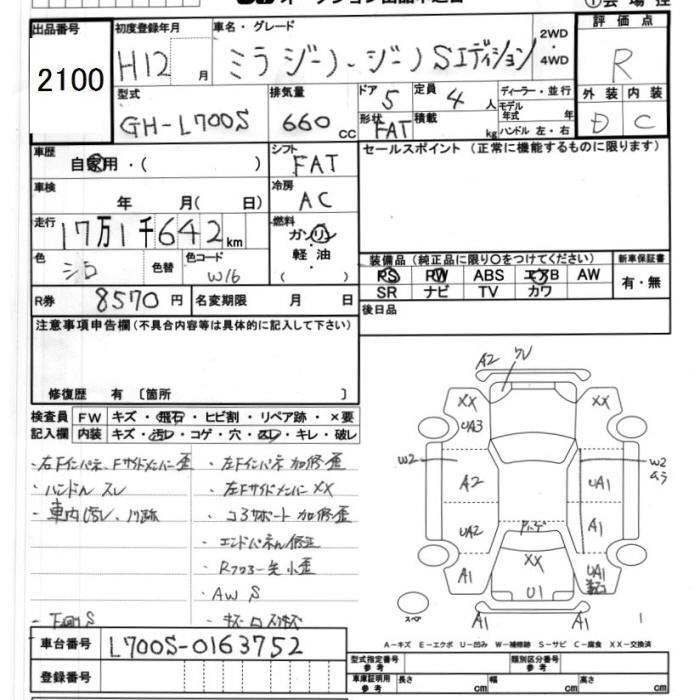 出品番号
2100
初度登録年月
H12 月
車名・グレード
ミラジーノ・ジーノSエディション
2WD
・
4WD
評価点
R
外装 内装
D C
型式
GH-L700S
排気量
660 cc
ドア 5
定員 4 人
形状 FAT
積載 kg
ディーラー・並行
モデル年式 年
ハンドル 左・右
車歴
自家用・( )
シフト
FAT
セールスポイント (正常に機能するものに限ります)
車検
年 月( 日)
冷房
AC
走行
17万1千642 km
燃料
ガソリン
・
軽油
( )
色
シロ
色替
色コード
W16
装備品 (純正品に限り○をつけてください)
新車保証書
PS PW ABS エアB AW
SR ナビ TV カワ
有・無
R券 8570 円
名変期限 月 日
後日品
注意事項申告欄 (不具合内容等は具体的に記入して下さい)
修復歴 有 〔箇所 〕
検査員
記入欄
FW キズ・飛石・ヒビ割・リペア跡・×要
内装 キズ・汚レ・コゲ・穴・スレ・キレ・破レ
・右Fインパネ、Fサイドメンバー歪
・ハンドル スレ
・車内汚レ、ノリ跡
・下回リS
・左Fインパネ 加修歪
・左Fサイドメンバー XX
・コアサポート 加修歪
・エンドパネル修正
・Rフロアー先 小歪
・AW S
A2
XX
XX
UA3
W2
W2
A2
UA1
UA2
A1
XX
A1
U1
UA1
A1
A1
スペア
A-キズ E-エクボ U-凹み W-補修跡 S-サビ C-腐食 XX-交換済
車台番号
L700S-0163752
登録番号
型式指定番号
参考
類別区分番号
参考
車庫証明用
参考
長さ cm
幅 cm
高さ cm